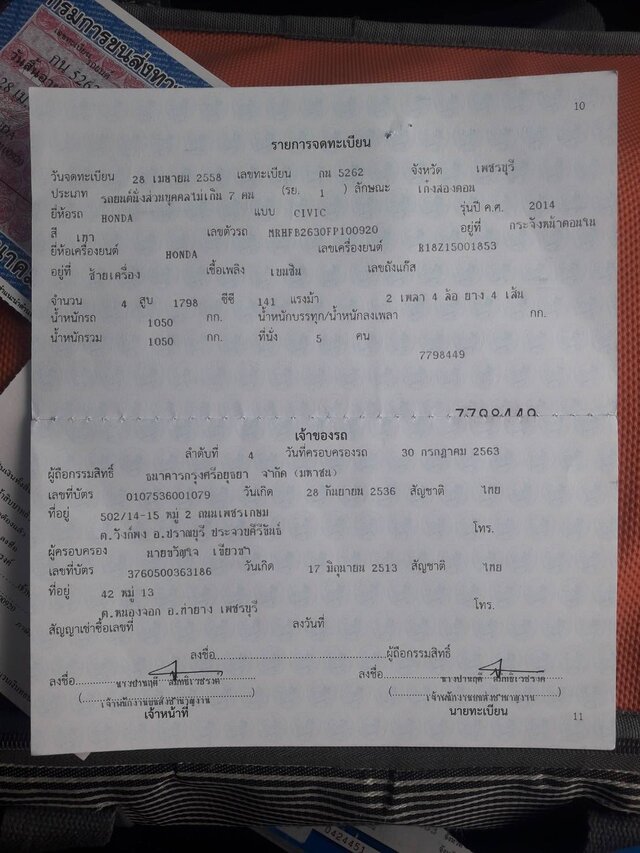 กรมการขนส่งทาง
กน 5262
10
รายการจดทะเบียน
วันจดทะเบียน 28 เมษายน 2558 เลขทะเบียน กน 5262 จังหวัด เพชรบุรี
ประเภท รถยนต์นั่งส่วนบุคคลไม่เกิน 7 คน (รย. 1 ) ลักษณะ เก๋งสองตอน
ยี่ห้อรถ HONDA แบบ CIVIC รุ่นปี ค.ศ. 2014
สี เทา เลขตัวรถ MRHFB2630FP100920 อยู่ที่ กระจังหน้าตอนใน
ยี่ห้อเครื่องยนต์ HONDA เลขเครื่องยนต์ R18Z15001853
อยู่ที่ ซ้ายเครื่อง เชื้อเพลิง เบนซิน เลขถังแก๊ส
จำนวน 4 สูบ 1798 ซีซี 141 แรงม้า 2 เพลา 4 ล้อ ยาง 4 เส้น
น้ำหนักรถ 1050 กก. น้ำหนักบรรทุก/น้ำหนักลงเพลา กก.
น้ำหนักรวม 1050 กก. ที่นั่ง 5 คน
7798449
7798449
เจ้าของรถ
ลำดับที่ 4 วันที่ครอบครองรถ 30 กรกฎาคม 2563
ผู้ถือกรรมสิทธิ์ ธนาคารกรุงศรีอยุธยา จำกัด (มหาชน)
เลขที่บัตร 0107536001079 วันเกิด 28 กันยายน 2536 สัญชาติ ไทย
ที่อยู่ 502/14-15 หมู่ 2 ถนนเพชรเกษม
ต.วังก์พง อ.ปราณบุรี ประจวบคีรีขันธ์ โทร.
ผู้ครอบครอง นายขวัญใจ เขียวขำ
เลขที่บัตร 3760500363186 วันเกิด 17 มิถุนายน 2513 สัญชาติ ไทย
ที่อยู่ 42 หมู่ 13
ต.หนองจอก อ.ท่ายาง เพชรบุรี โทร.
สัญญาเช่าซื้อเลขที่ ลงวันที่
ลงชื่อ ผู้ถือกรรมสิทธิ์
ลงชื่อ ลงชื่อ
(เจ้าพนักงานขนส่งชำนาญงาน) (เจ้าพนักงานขนส่งชำนาญงาน)
เจ้าหน้าที่ นายทะเบียน
11
0424451